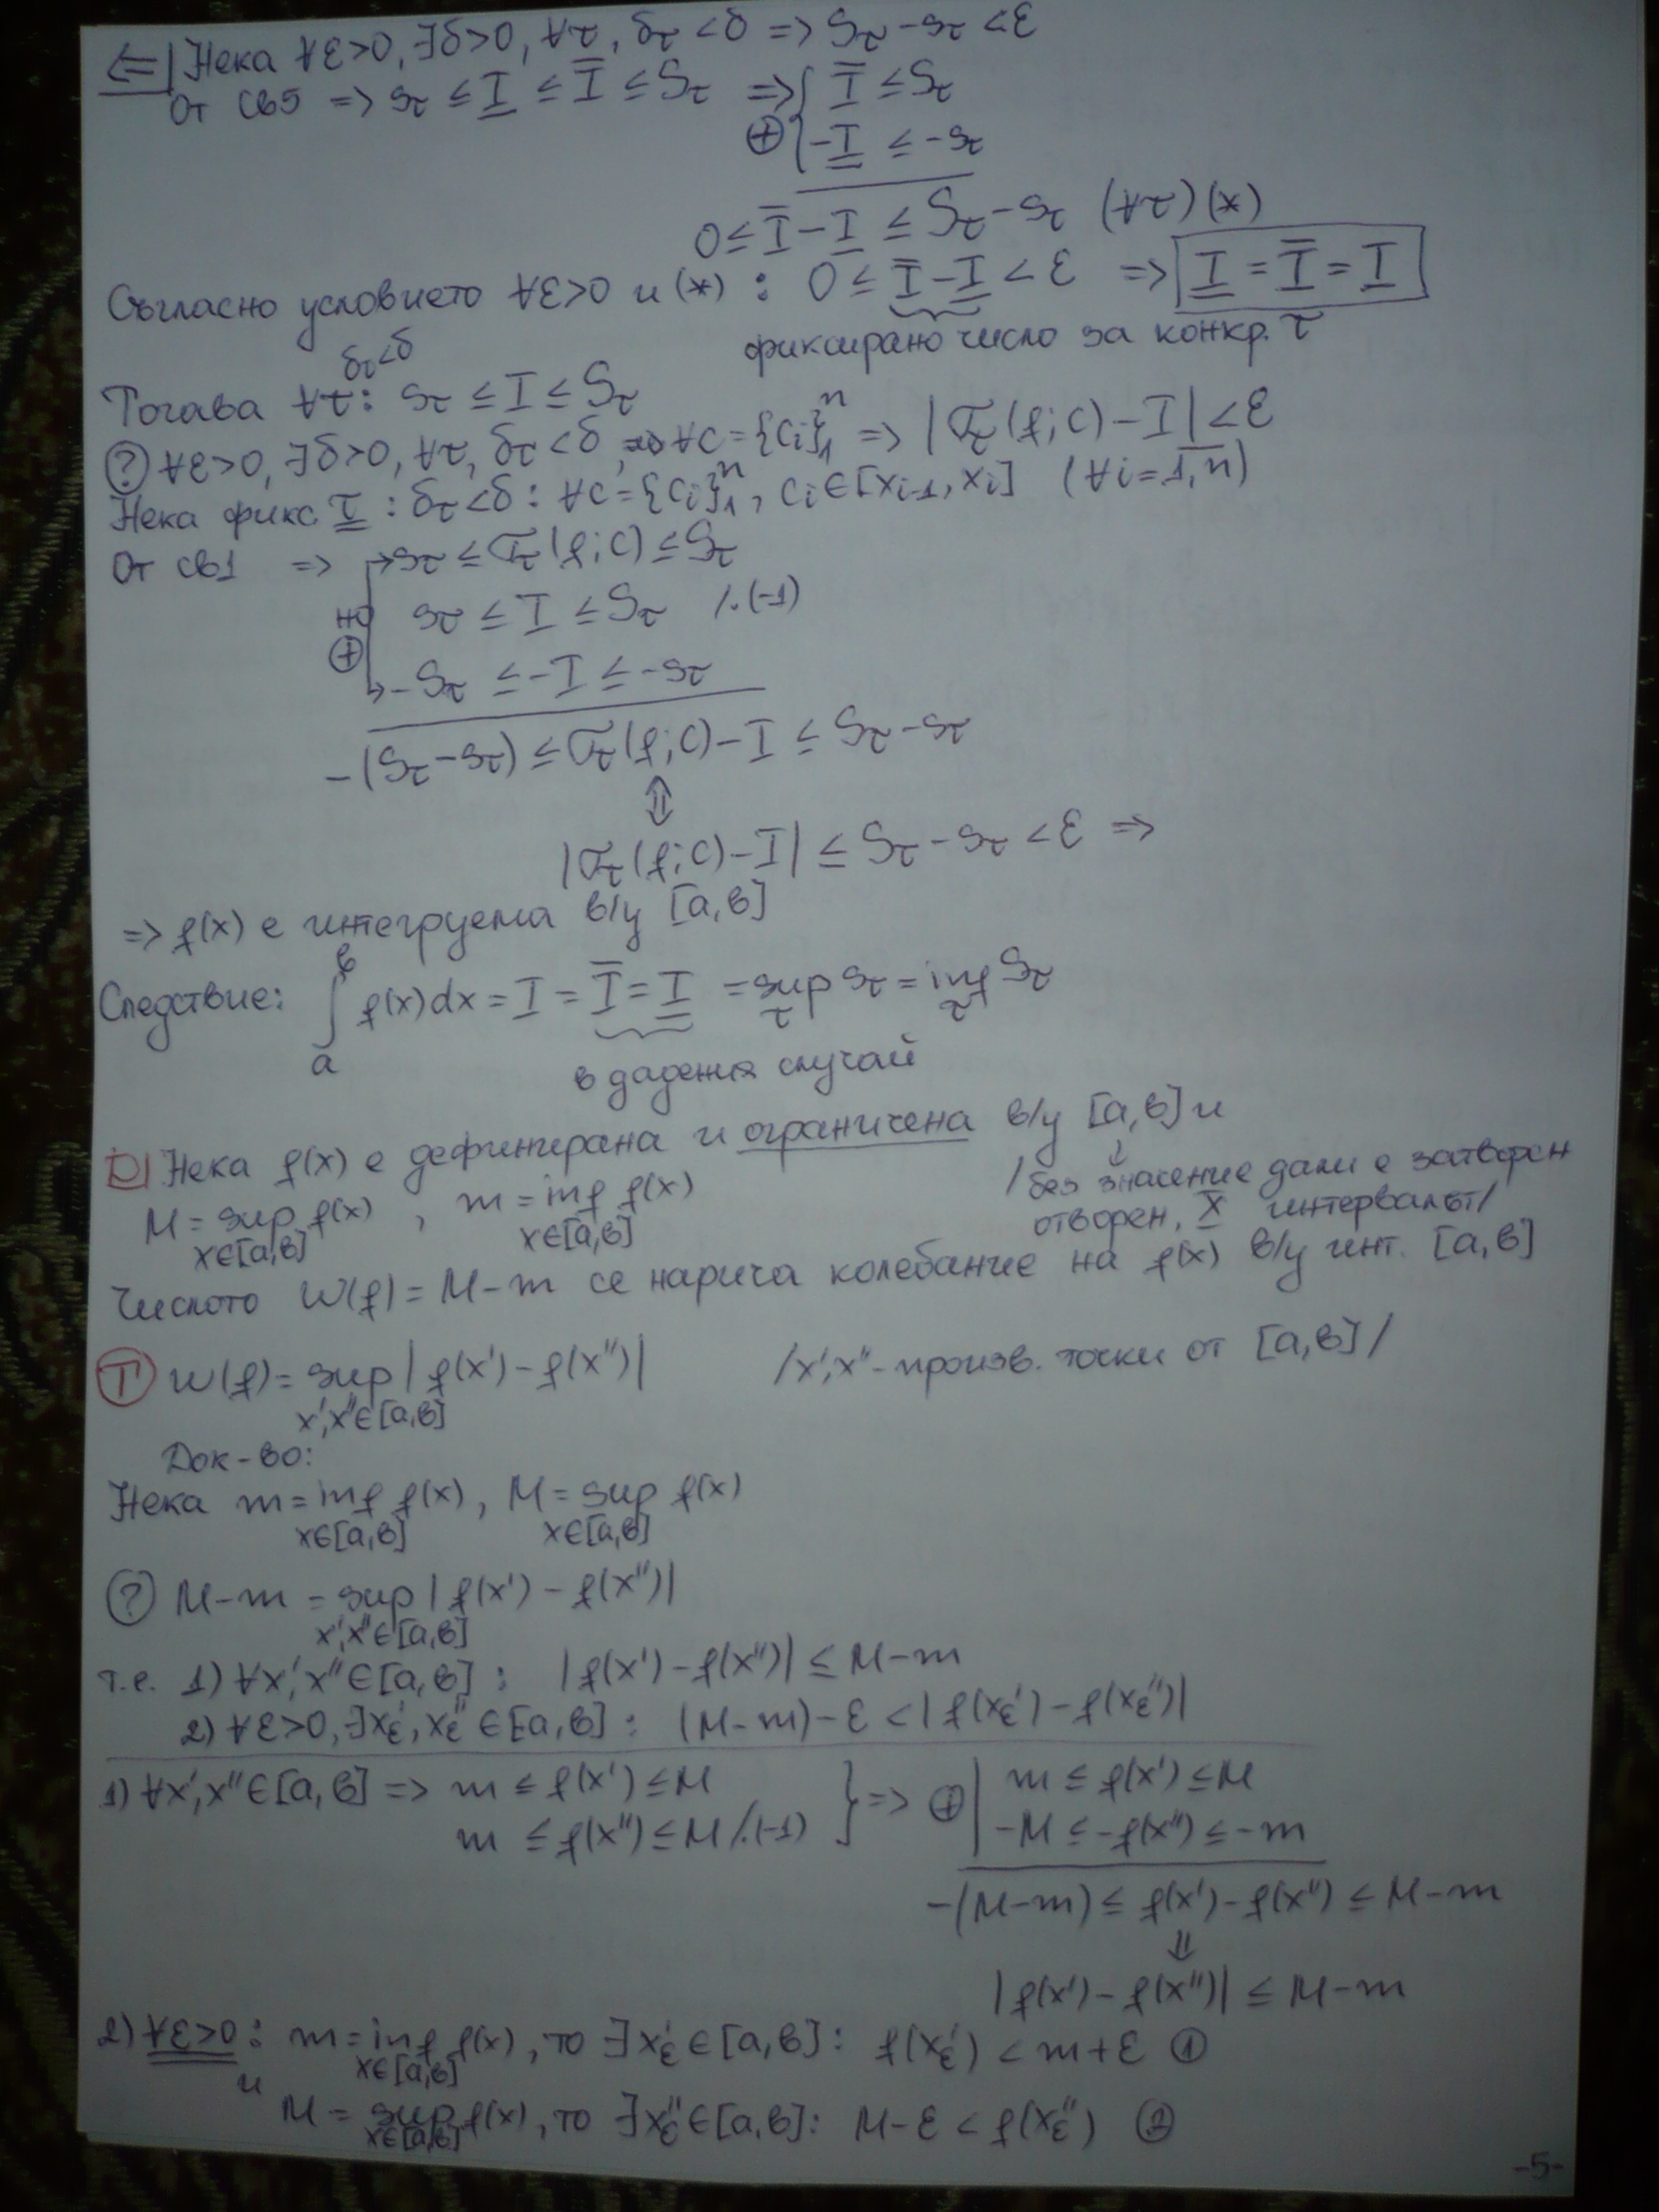 <=| Нека ∀ε>0, ∃δ>0, ∀τ, δτ<δ => Sτ-sτ<ε
От св5 => sτ ≤ I̲ ≤ Ī ≤ Sτ => { Ī ≤ Sτ
⊕ { -I̲ ≤ -sτ
0 ≤ Ī - I̲ ≤ Sτ - sτ (∀τ) (*)
Съгласно условието ∀ε>0 и (*) : 0 ≤ Ī - I̲ < ε => I̲ = Ī = I
фиксирано число за конкр. τ
δτ<δ
Тогава ∀τ: sτ ≤ I ≤ Sτ
? ∀ε>0, ∃δ>0, ∀τ, δτ<δ, ∀c = {ci}₁ⁿ => |στ(f;c)-I|<ε
Нека фикс. τ : δτ<δ : ∀c = {ci}₁ⁿ, ci∈[xi-1, xi] (∀i=1,n)
От св1 => sτ ≤ στ(f;c) ≤ Sτ
но sτ ≤ I ≤ Sτ /.(-1)
⊕ -Sτ ≤ -I ≤ -sτ
-(Sτ-sτ) ≤ στ(f;c)-I ≤ Sτ-sτ
⇕
|στ(f;c)-I| ≤ Sτ-sτ < ε =>
=> f(x) е интегруема в/у [a,b]
Следствие: ∫ₐᵇ f(x)dx = I = Ī = I̲ = sup sτ = inf Sτ
τ τ
в дадения случай
D| Нека f(x) е дефинирана и ограничена в/у [a,b] и
↓
/без значение дали е затворен
M = sup f(x), m = inf f(x)
x∈[a,b] x∈[a,b]
отворен, X интервалът/
Числото W(f) = M-m се нарича колебание на f(x) в/у инт. [a,b]
T W(f) = sup |f(x')-f(x'')| /x',x''-произв. точки от [a,b]/
x',x''∈[a,b]
Док-во:
Нека m = inf f(x), M = sup f(x)
x∈[a,b] x∈[a,b]
? M-m = sup |f(x') - f(x'')|
x',x''∈[a,b]
т.е. 1) ∀x',x''∈[a,b] : |f(x')-f(x'')| ≤ M-m
2) ∀ε>0, ∃xε', xε''∈[a,b] : (M-m)-ε < |f(xε')-f(xε'')|
1) ∀x',x''∈[a,b] => m ≤ f(x') ≤ M } => ⊕ | m ≤ f(x') ≤ M
m ≤ f(x'') ≤ M /.(-1) -M ≤ -f(x'') ≤ -m
-(M-m) ≤ f(x')-f(x'') ≤ M-m
⇓
|f(x')-f(x'')| ≤ M-m
2) ∀ε>0 : m = inf f(x), то ∃xε'∈[a,b] : f(xε') < m+ε ①
x∈[a,b]
и
M = sup f(x), то ∃xε''∈[a,b] : M-ε < f(xε'') ②
x∈[a,b]
-5-